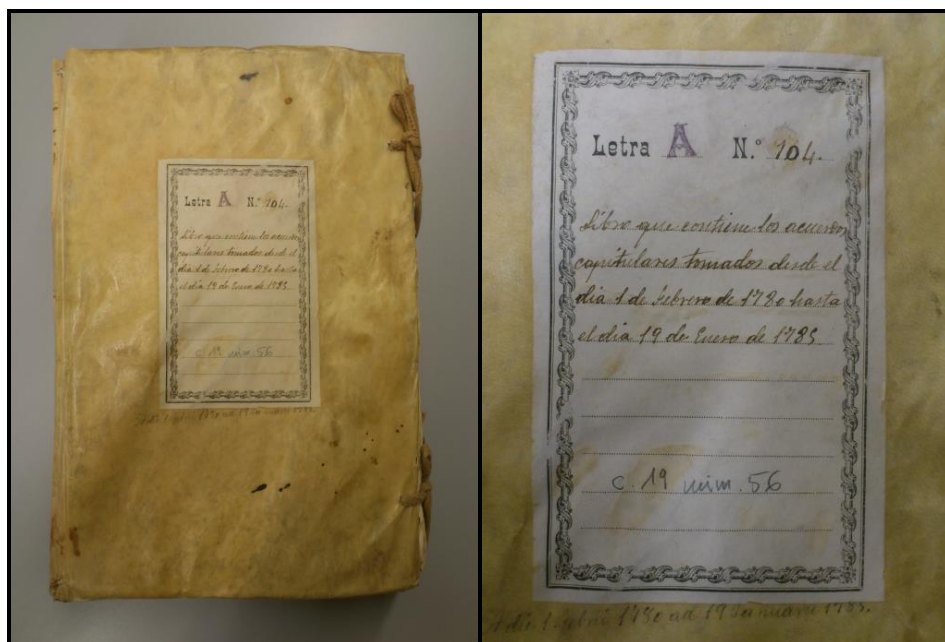 Letra A N.º 104.
Libro que contiene los acuerdos
capitulares tomados desde el
dia 1 de febrero de 1780 hasta
el dia 19 de Enero de 1785
c. 19 núm. 56
Letra A N.º 104.
Libro que contiene los acuerdos
capitulares tomados desde el
dia 1 de febrero de 1780 hasta
el dia 19 de Enero de 1785
c. 19 núm. 56
A die 1 febrii 1780 ad 19 Januarii 1785.